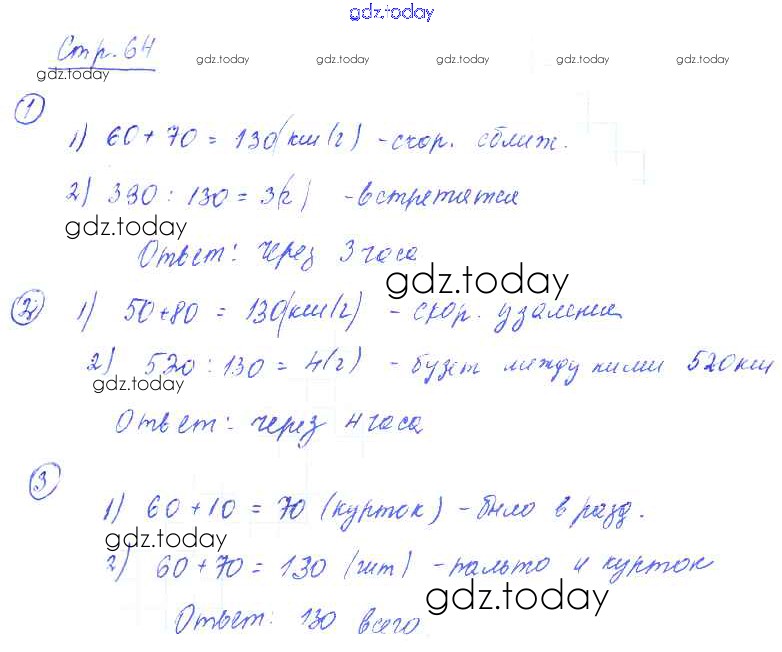 gdz.today
Стр. 64
gdz.today gdz.today gdz.today gdz.today gdz.today gdz.today
1
1) 60 + 70 = 130 (км/ч) - скор. сближ.
2) 390 : 130 = 3(ч) - встретятся
gdz.today
Ответ: через 3 часа
gdz.today
2) 1) 50+80 = 130(км/ч) - скор. удаления
2) 520 : 130 = 4(ч) - будет между ними 520км
gdz.today
Ответ: через 4 часа
3
1) 60 + 10 = 70 (курток) - было в разд.
gdz.today
2) 60 + 70 = 130 (шт) - пальто и курток
gdz.today
Ответ: 130 всего